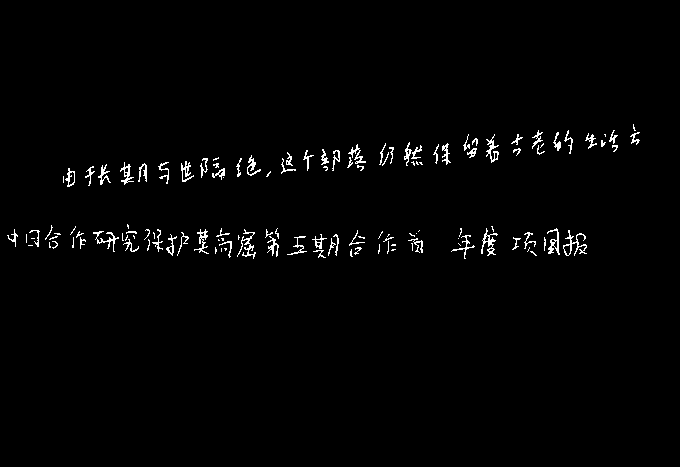 由于长期与世隔绝,这个部落仍然保留着古老的生活方
中日合作研究保护莫高窟第五期合作首 年度项目报